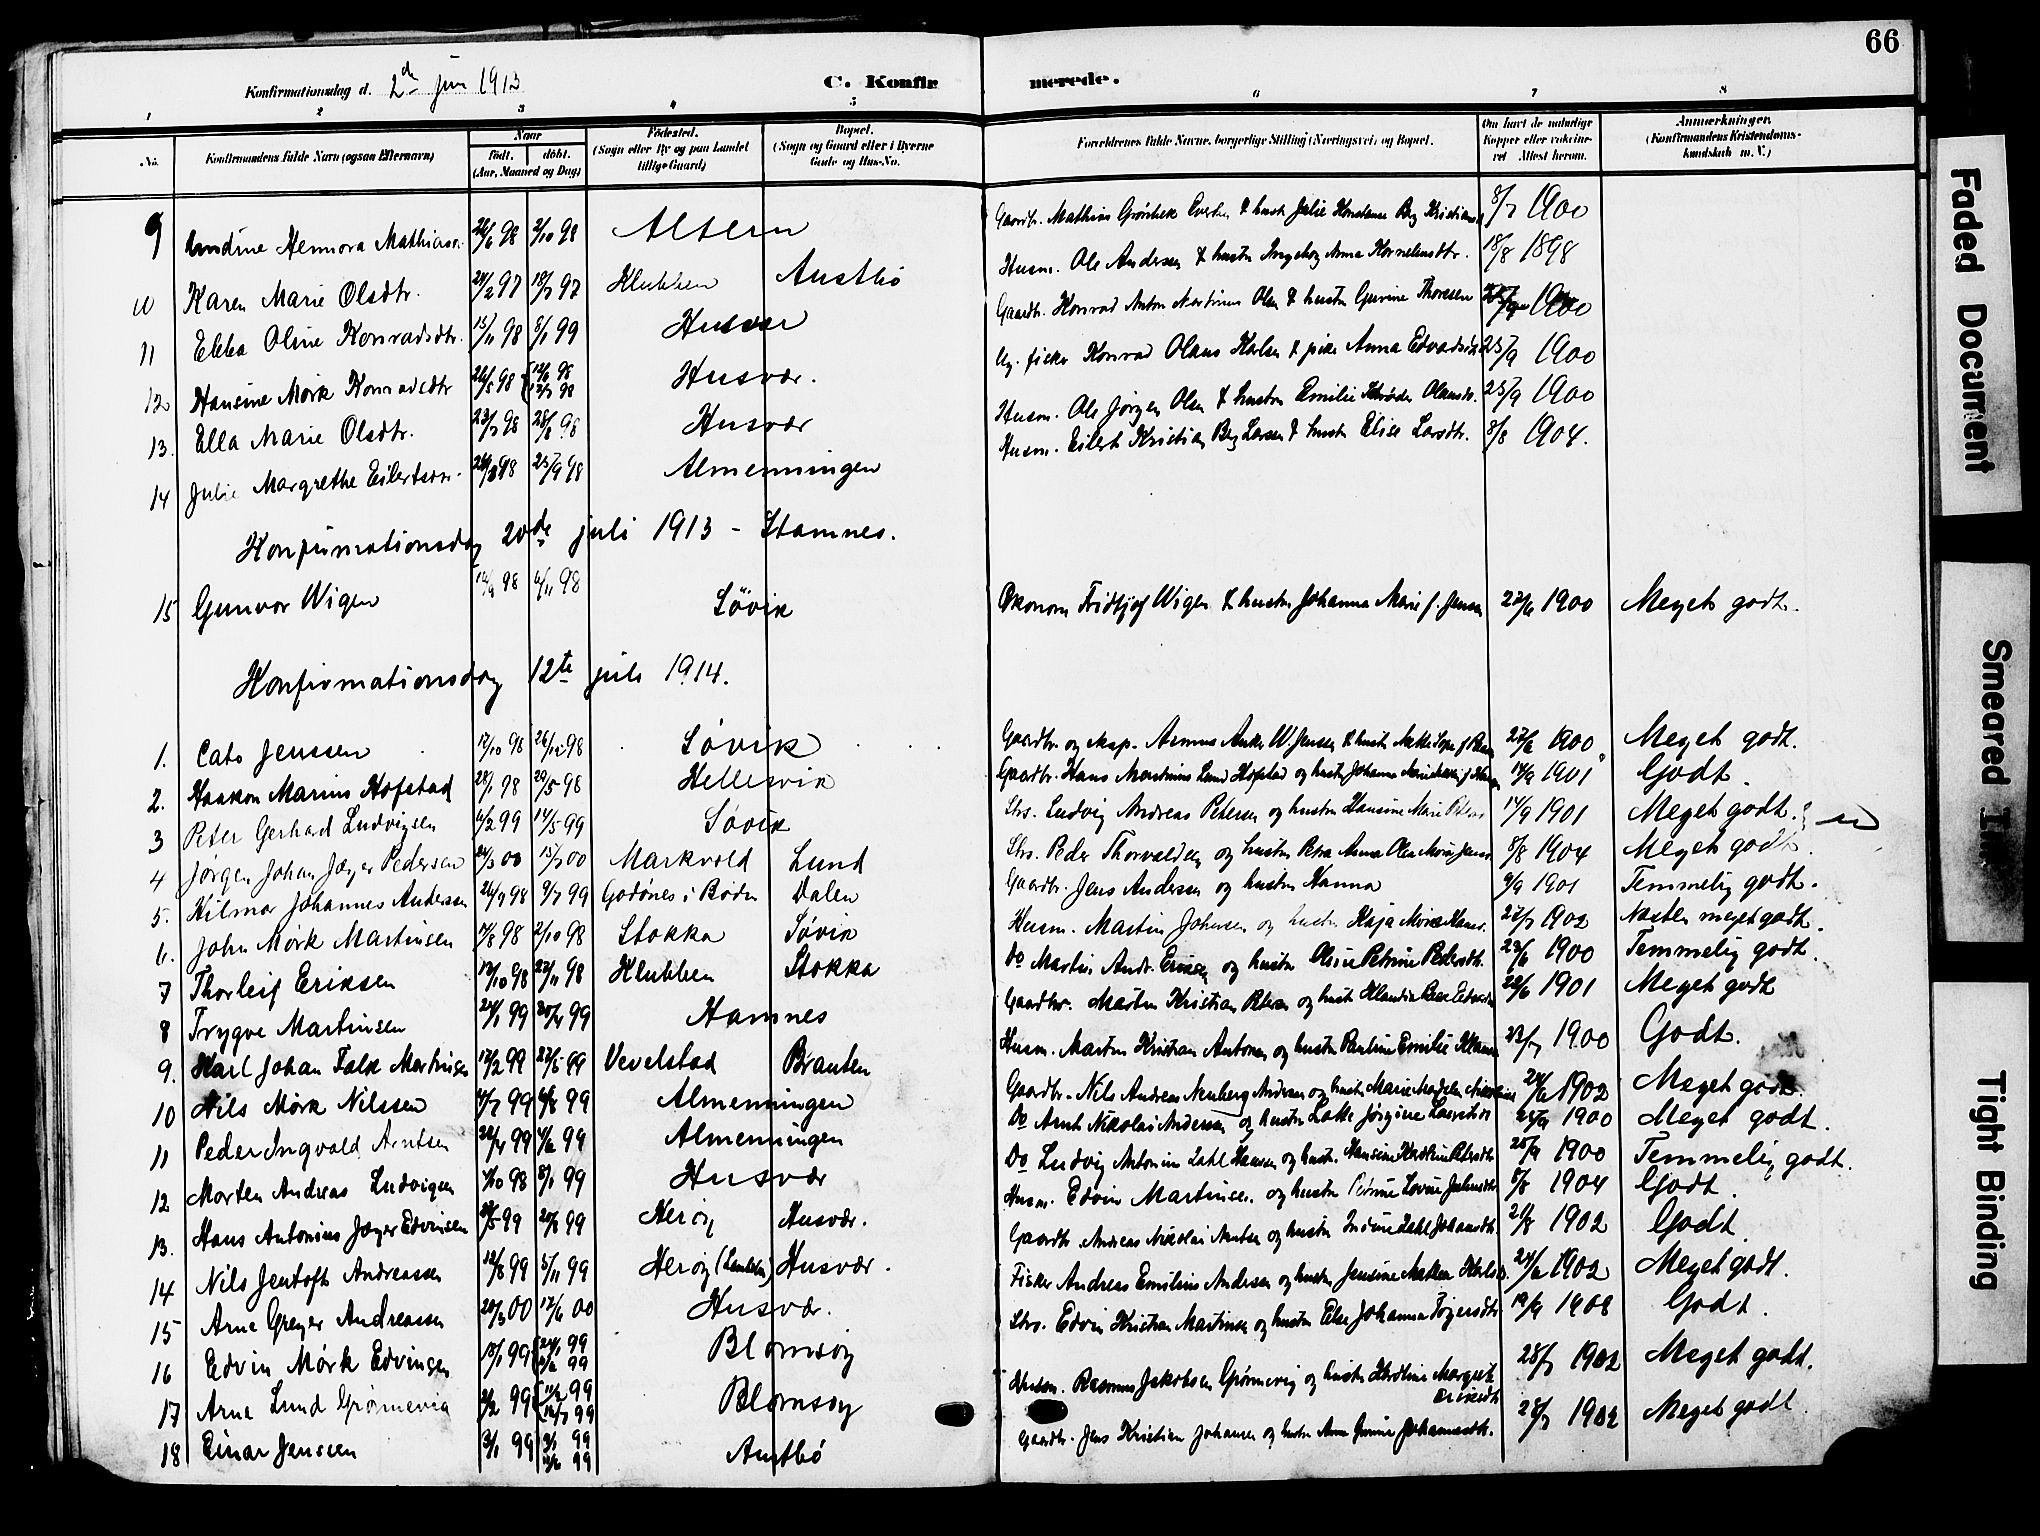 66
Konfirmationsdag d. 2de juni 1913
C. Konfirmerede.
1 2 3 4 5 6 7 8
No. Konfirmandens fulde Navn (ogsaa Efternavn) Naar födt. döbt. (Aar, Maaned og Dag) Födested. (Sogn eller By og paa Landet tillige Gaard) Bopæl. (Sogn og Gaard eller i Byerne Gade og Hus-No. Forældrenes fulde Navne, borgerlige Stilling (Næringsvei) og Bopæl. Om havt de naturlige Kopper eller vakcineret Attest herom. Anmærkninger. (Konfirmandens Kristendomskundskab m. V.)
9 Andine Hennora Mathiass. 26/6 98 2/10 98 Altern Gaardbr. Mathias Grönbek & hustr Julie Konstance Berg 8/7 1900
10 Karen Marie Olsdtr. 24/2 97 18/7 97 Klubben Austbö Husm. Ole Andersen & hustru Ingeborg Anna Kornelius dtr. 18/8 1898
11 Ebba Oline Konradsdtr. 15/11 98 8/1 99 Husvær Gaardbr. Konrad Anton Martinus Olsen & hustru Gurine Thoresen 1900
12 Hansine Mörk Konradsdtr 26/5 98 12/6 98 17/7 98 Husvær. Ug. fisker Konrad Olaus Karlsen & pike Anna Edvardsdtr 25/9 1900
13. Ella Marie Olsdtr. 23/7 98 28/8 98 Husvær Husm. Ole Jörgen Olsen & hustru Emilie Schröder Olausdtr. 25/9 1900
14 Julie Margrethe Eilertsen. 98 25/9 98 Almenningen Husm. Eilert Kristian Berg Larsen & hustr Elise Larsdtr. 8/8 1904.
Konfirmationsdag 20de juli 1913 - Stamnes.
15 Gunvor Wigen 98 6/11 98 Sövik Økonom Fridtjof Wigen & hustru Johanna Marie f. Jensen 27/6 1900 Meget godt.
Konfirmationsdag 12te juli 1914.
1. Cato Jenssen 17/10 98 26/12 98 Søvik Gaardbr. og eksp. Asmus Anker W. Jensen & hustr 27/6 1900 Meget godt.
2. Haakon Marius Hofstad 28/1 98 29/5 98 Hellesvik Gaardbr. Hans Martinius Lund Hofstad og hustr Johanna 14/9 1901 Godt.
3 Peter Gerhard Ludvigsen 6/2 99 14/5 99 Søvik Strs. Ludvig Andreas Petersen og hustru Hansine Marie 14/9 1901 Meget godt.
4 Jørgen Johan Jæger Pedersen 24/3 00 15/7 00 Markvold Lund Strs. Peder Thorvaldsen og hustru Petra Anna 8/8 1904 Meget godt.
5. Hilmar Johannes Andersen 26/9 98 9/7 99 Godönes i Bodø Dalen Gaardbr. Jens Andersen og hustru Hanna 9/9 1901 Temmelig godt.
6. John Mørk Martinsen 17/8 98 2/10 98 Stokka Søvik Husm. Martin Johansen og hustru Kaja 27/7 1902 Næsten meget godt.
7 Thorleif Eriksen 12/10 98 27/11 98 Klubben Stokka Do Martin Andr. Eriksen og hustru Oline Petrine Pedersdtr. 23/6 1900 Temmelig godt.
8 Trygve Martinsen 24/1 99 30/4 99 Hamnes Gaardbr. Martin Kristian Petersen og hustr Klaudia 28/6 1901 Meget godt
9. Karl Johan Falk Martinsen 17/2 99 27/5 99 Vevelstad Brauten Husm. Martin Kristian Antonsen og hustru Pauline Emilie 23/7 1900 Godt.
10 Nils Mørk Nilssen 4/7 99 6/8 99 Almenningen Gaardbr. Nils Andreas Nenberg Andersen og hustr Marie 24/6 1902 Meget godt.
11 Peder Ingvald Arntsen 28/4 99 4/6 99 Almenningen Do Arnt Nikolai Andersen og hustru Lotte Jörgine 25/9 1900 Meget godt.
12 Morten Andreas Ludvigsen 4/10 98 8/1 99 Husvær Do Ludvig Antonius Zahl Hansen og hustr. Hansine 25/9 1900 Temmelig godt.
13. Hans Antonius Jæger Edvinsen 5 99 20/8 99 Herøy Husvær. Husm. Edvin Martinsen og hustru Petrine Lovise 8/8 1904 Godt.
14 Nils Jentoft Andreassen 12/8 99 5/11 99 Herøy Husvær. Gaardbr. Andreas Nikolai og hustru Indine Zahl Johansdtr 21/8 1902 Godt.
15 Arne Greger Andreassen 20/3 00 17/6 00 Husvær. Fisker Andreas Emilius Andersen og hustru Jensine 24/6 1902 Meget godt.
16 Edvin Mørk Edvinsen 18/1 99 99 99 Blomsøy Strs. Edvin Kristian Martinsen og hustru Else Johanna 19/9 1908 Godt.
17 Arne Lund Grønnevig 3/2 99 11/2 99 16/7 99 Blomsøy Husm. Rasmus Jakobsen Grønnevig og hustr Karoline Margrete Eriksdtr 28/7 1902 Meget godt.
18 Einar Jenssen 3/1 99 99 99 Austbö Gaardbr. Jens Kristian Johansen og hustr Johannesdtr. 28/7 1902 Meget godt
Faded Document
Smeared Ink
Tight Binding